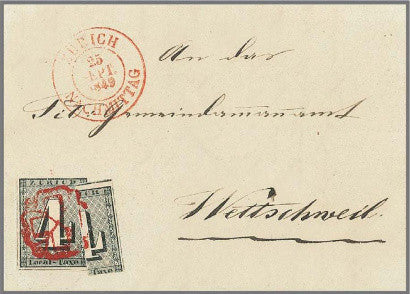 ZÜRICH
25
SEPT.
1849
VORMITTAG
An das
Tit. Gemeindammannamt
Wettschweil.
ZÜRICH
4
Local-Taxe
4
Taxe